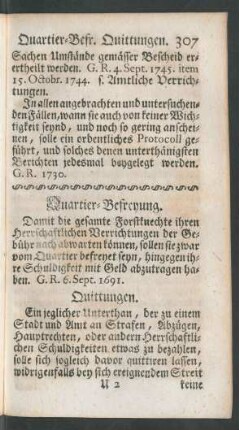 Quartier-Befr. Quittungen. 307
Sachen Umstände gemässer Bescheid er-
ertheilt werden. G. R. 4. Sept. 1745. item
15. Octobr. 1744. s. Amtliche Verrich-
tungen.
In allen angebrachten und untersuchen-
den Fällen, wann sie auch von keiner Wich-
tigkeit seynd, und noch so gering anschei-
nen, solle ein ordentliches Protocoll ge-
führt, und solches denen unterthänigsten
Berichten jedesmal beygelegt werden.
G. R. 1730.
Quartier-Befreyung.
Damit die gesamte Forstknechte ihren
Herrschaftlichen Verrichtungen der Ge-
bühr nach abwarten können, sollen sie zwar
vom Quartier befreyet seyn, hingegen ih-
re Schuldigkeit mit Geld abzutragen ha-
ben. G. R. 6. Sept. 1691.
Quittungen.
Ein jeglicher Unterthan, der zu einem
Stadt und Amt an Strafen, Abzügen,
Hauptrechten, oder andern Herrschaftli-
chen Schuldigkeiten etwas zu bezahlen,
solle sich sogleich davor quittiren lassen,
widrigenfalls bey sich ereignendem Streit
U 2 keine